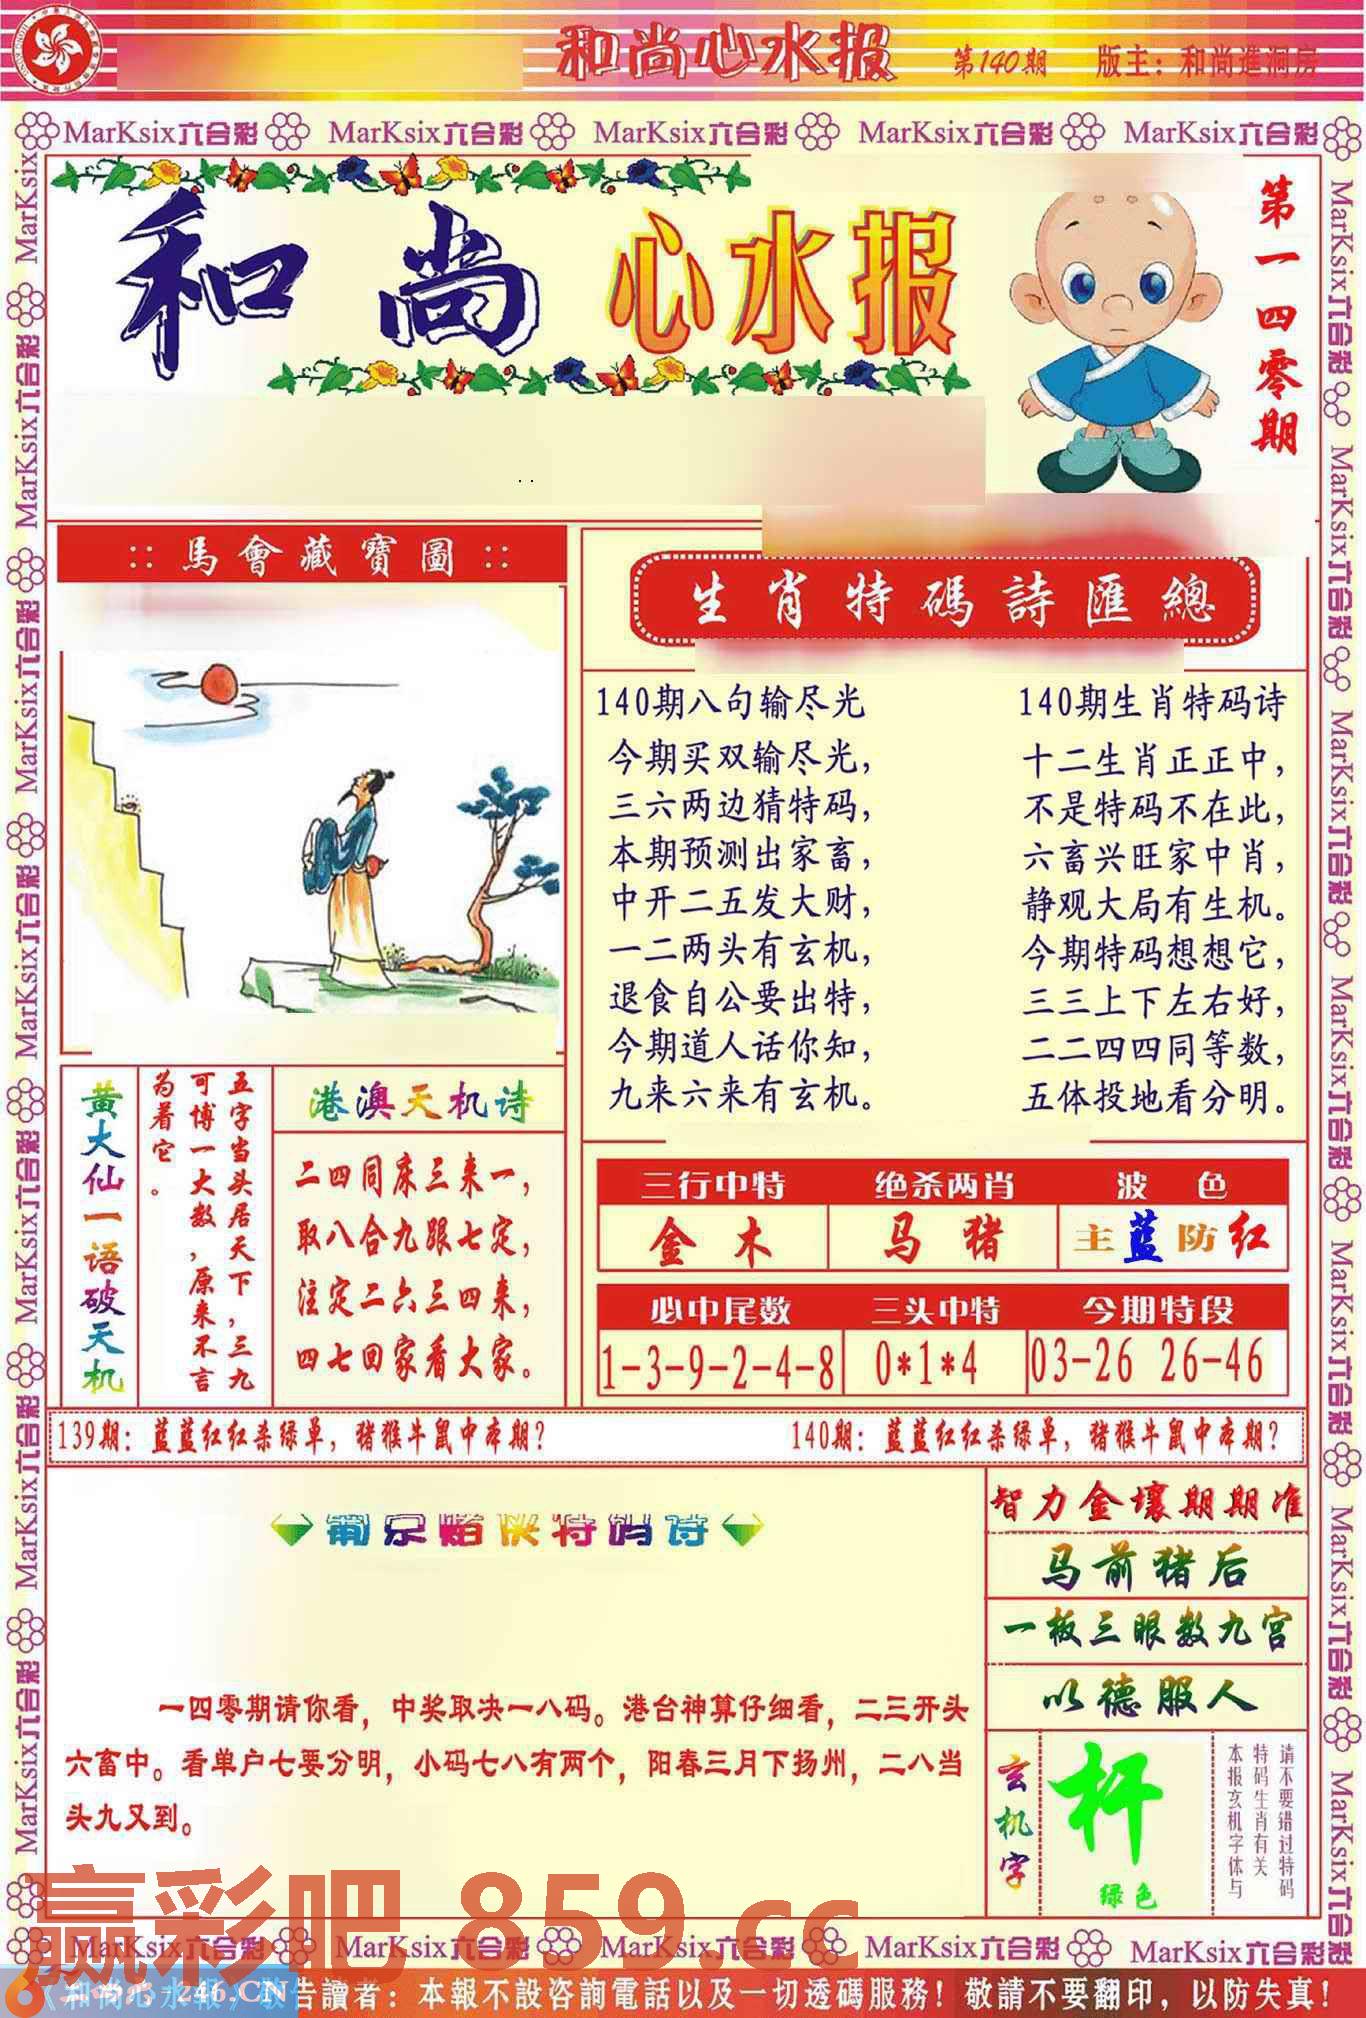 和尚心水报 第140期 版主：和尚進洞房
MarKsix六合彩 MarKsix六合彩 MarKsix六合彩 MarKsix六合彩 MarKsix六合彩
和尚心水报
第一四零期
:: 馬會藏寶圖 ::
生肖特碼詩匯總
140期八句输尽光
今期买双输尽光，
三六两边猜特码，
本期预测出家畜，
中开二五发大财，
一二两头有玄机，
退食自公要出特，
今期道人话你知，
九来六来有玄机。
140期生肖特码诗
十二生肖正正中，
不是特码不在此，
六畜兴旺家中肖，
静观大局有生机。
今期特码想想它，
三三上下左右好，
二二四四同等数，
五体投地看分明。
黄大仙一语破天机
五字当头居天下，三九
可博一大数，原来不言
为着它。
港澳天机诗
二四同床三来一，
取八合九跟七定，
注定二六三四来，
四七回家看大家。
三行中特 绝杀两肖 波色
金木 马猪 主蓝防红
必中尾数 三头中特 今期特段
1-3-9-2-4-8 0*1*4 03-26 26-46
139期：蓝蓝红红杀绿单，猪猴牛鼠中本期？ 140期：蓝蓝红红杀绿单，猪猴牛鼠中本期？
葡京赌侠特码诗
一四零期请你看，中奖取决一八码。港台神算仔细看，二三开头
六畜中。看单户七要分明，小码七八有两个，阳春三月下扬州，二八当
头九又到。
智力金壤期期准
马前猪后
一板三眼数九宫
以德服人
玄机字
杆
绿色
请不要错过特码
特码生肖有关
本报玄机字体与
赢彩吧 859.cc
MarKsix六合彩 MarKsix六合彩 MarKsix六合彩 MarKsix六合彩 MarKsix六合彩
246.CN
告讀者：本報不設咨詢電話以及一切透碼服務！敬請不要翻印，以防失真！